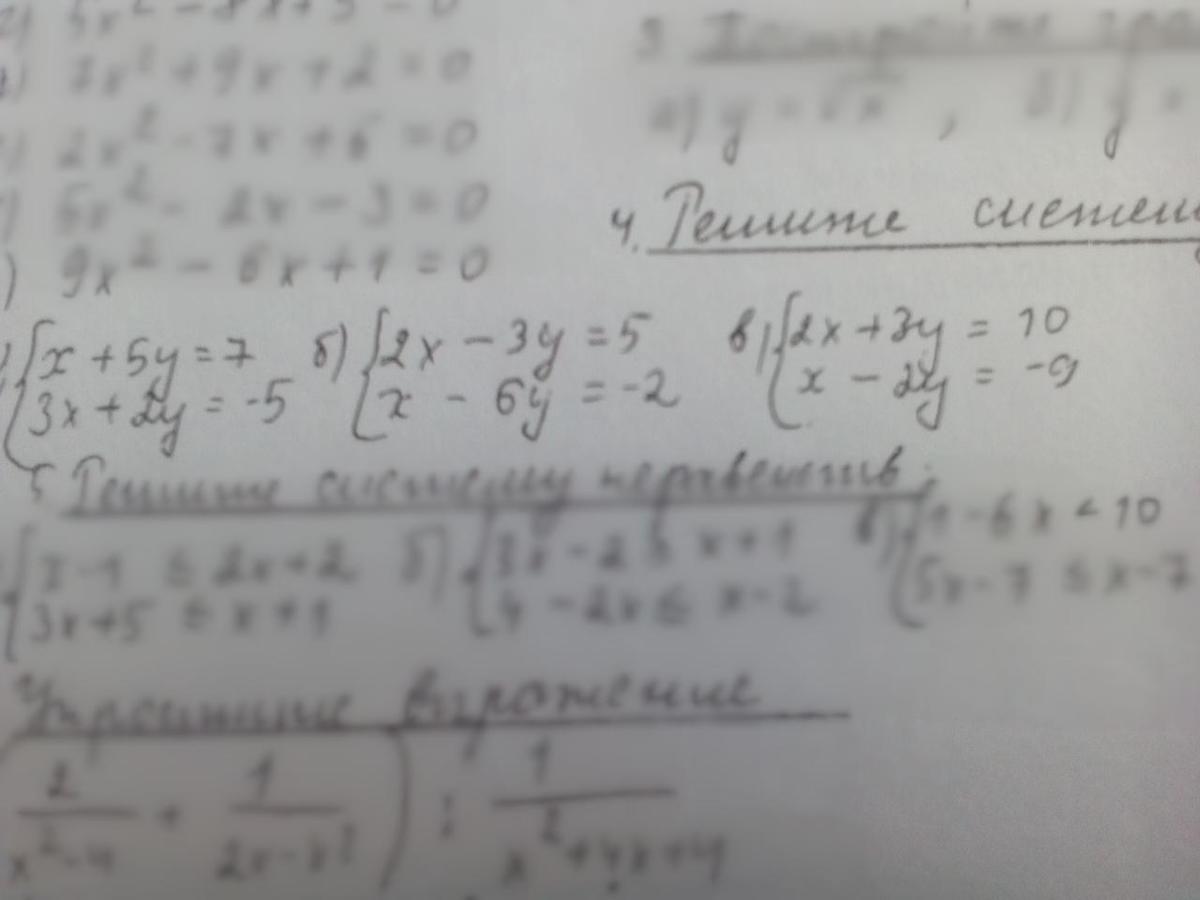 7x² + 9x + 2 = 0
2x² - 7x + 6 = 0
5x² - 2x - 3 = 0
9x² - 6x + 1 = 0
а) y = √x , б) y =
4. Решите систем
{ x + 5y = 7
3x + 2y = -5
б) { 2x - 3y = 5
x - 6y = -2
в) { 2x + 3y = 10
x - 2y = -9
5 Решите систему неравенств:
{ x - 1 ≤ 2x + 2
3x + 5 ≤ x + 1
б) { 3x - 2 ≥ x + 1
4 - 2x ≤ x - 2
в) { 1 - 6x < 10
5x - 7 ≤ x - 7
Упростите выражение
2/(x² - 4) + 1/(2x - x²) ) : 1/(x² + 4x + 4)